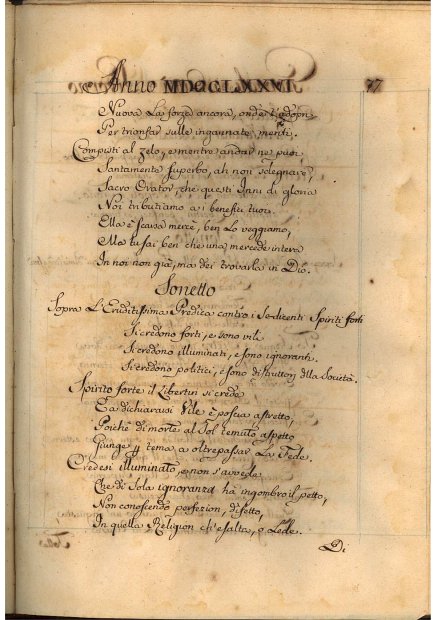 Anno MDCCLXXVI. 77
Nuova La forza ancora, ond'è t'adopri
Per trionfar sulle ingannate menti.
Compisti al zelo, e mentre andar ne puoi
Santamente superbo, ah non sdegnare,
Sacro Orator, che questi Inni di gloria
Noi tributiamo a i benefici tuoi.
Ella è scarsa mercè, ben Lo veggiamo,
Ma tu sai ben che una mercede intera
In noi non già, ma dei trovarla in Dio.
Sonetto
Sopra L'Eruditissima Predica contro i Sedicenti Spiriti forti
Si credono forti, e sono vili
Si credono illuminati, e sono ignoranti.
Si credono politici, e sono distruttori della Società.
Spirito forte il Libertin si crede
E a dichiararsi Vile è poscia astretto,
Poichè di morte al Sol temuto aspetto
Giunge p tema a oltrepassar La Fede.
Credesi illuminato, e non s'avvede
Che di Sola ignoranza hà ingombro il petto,
Non conoscendo perfezion, difetto,
In quella Religion ch'esalta, o Lede.
Di